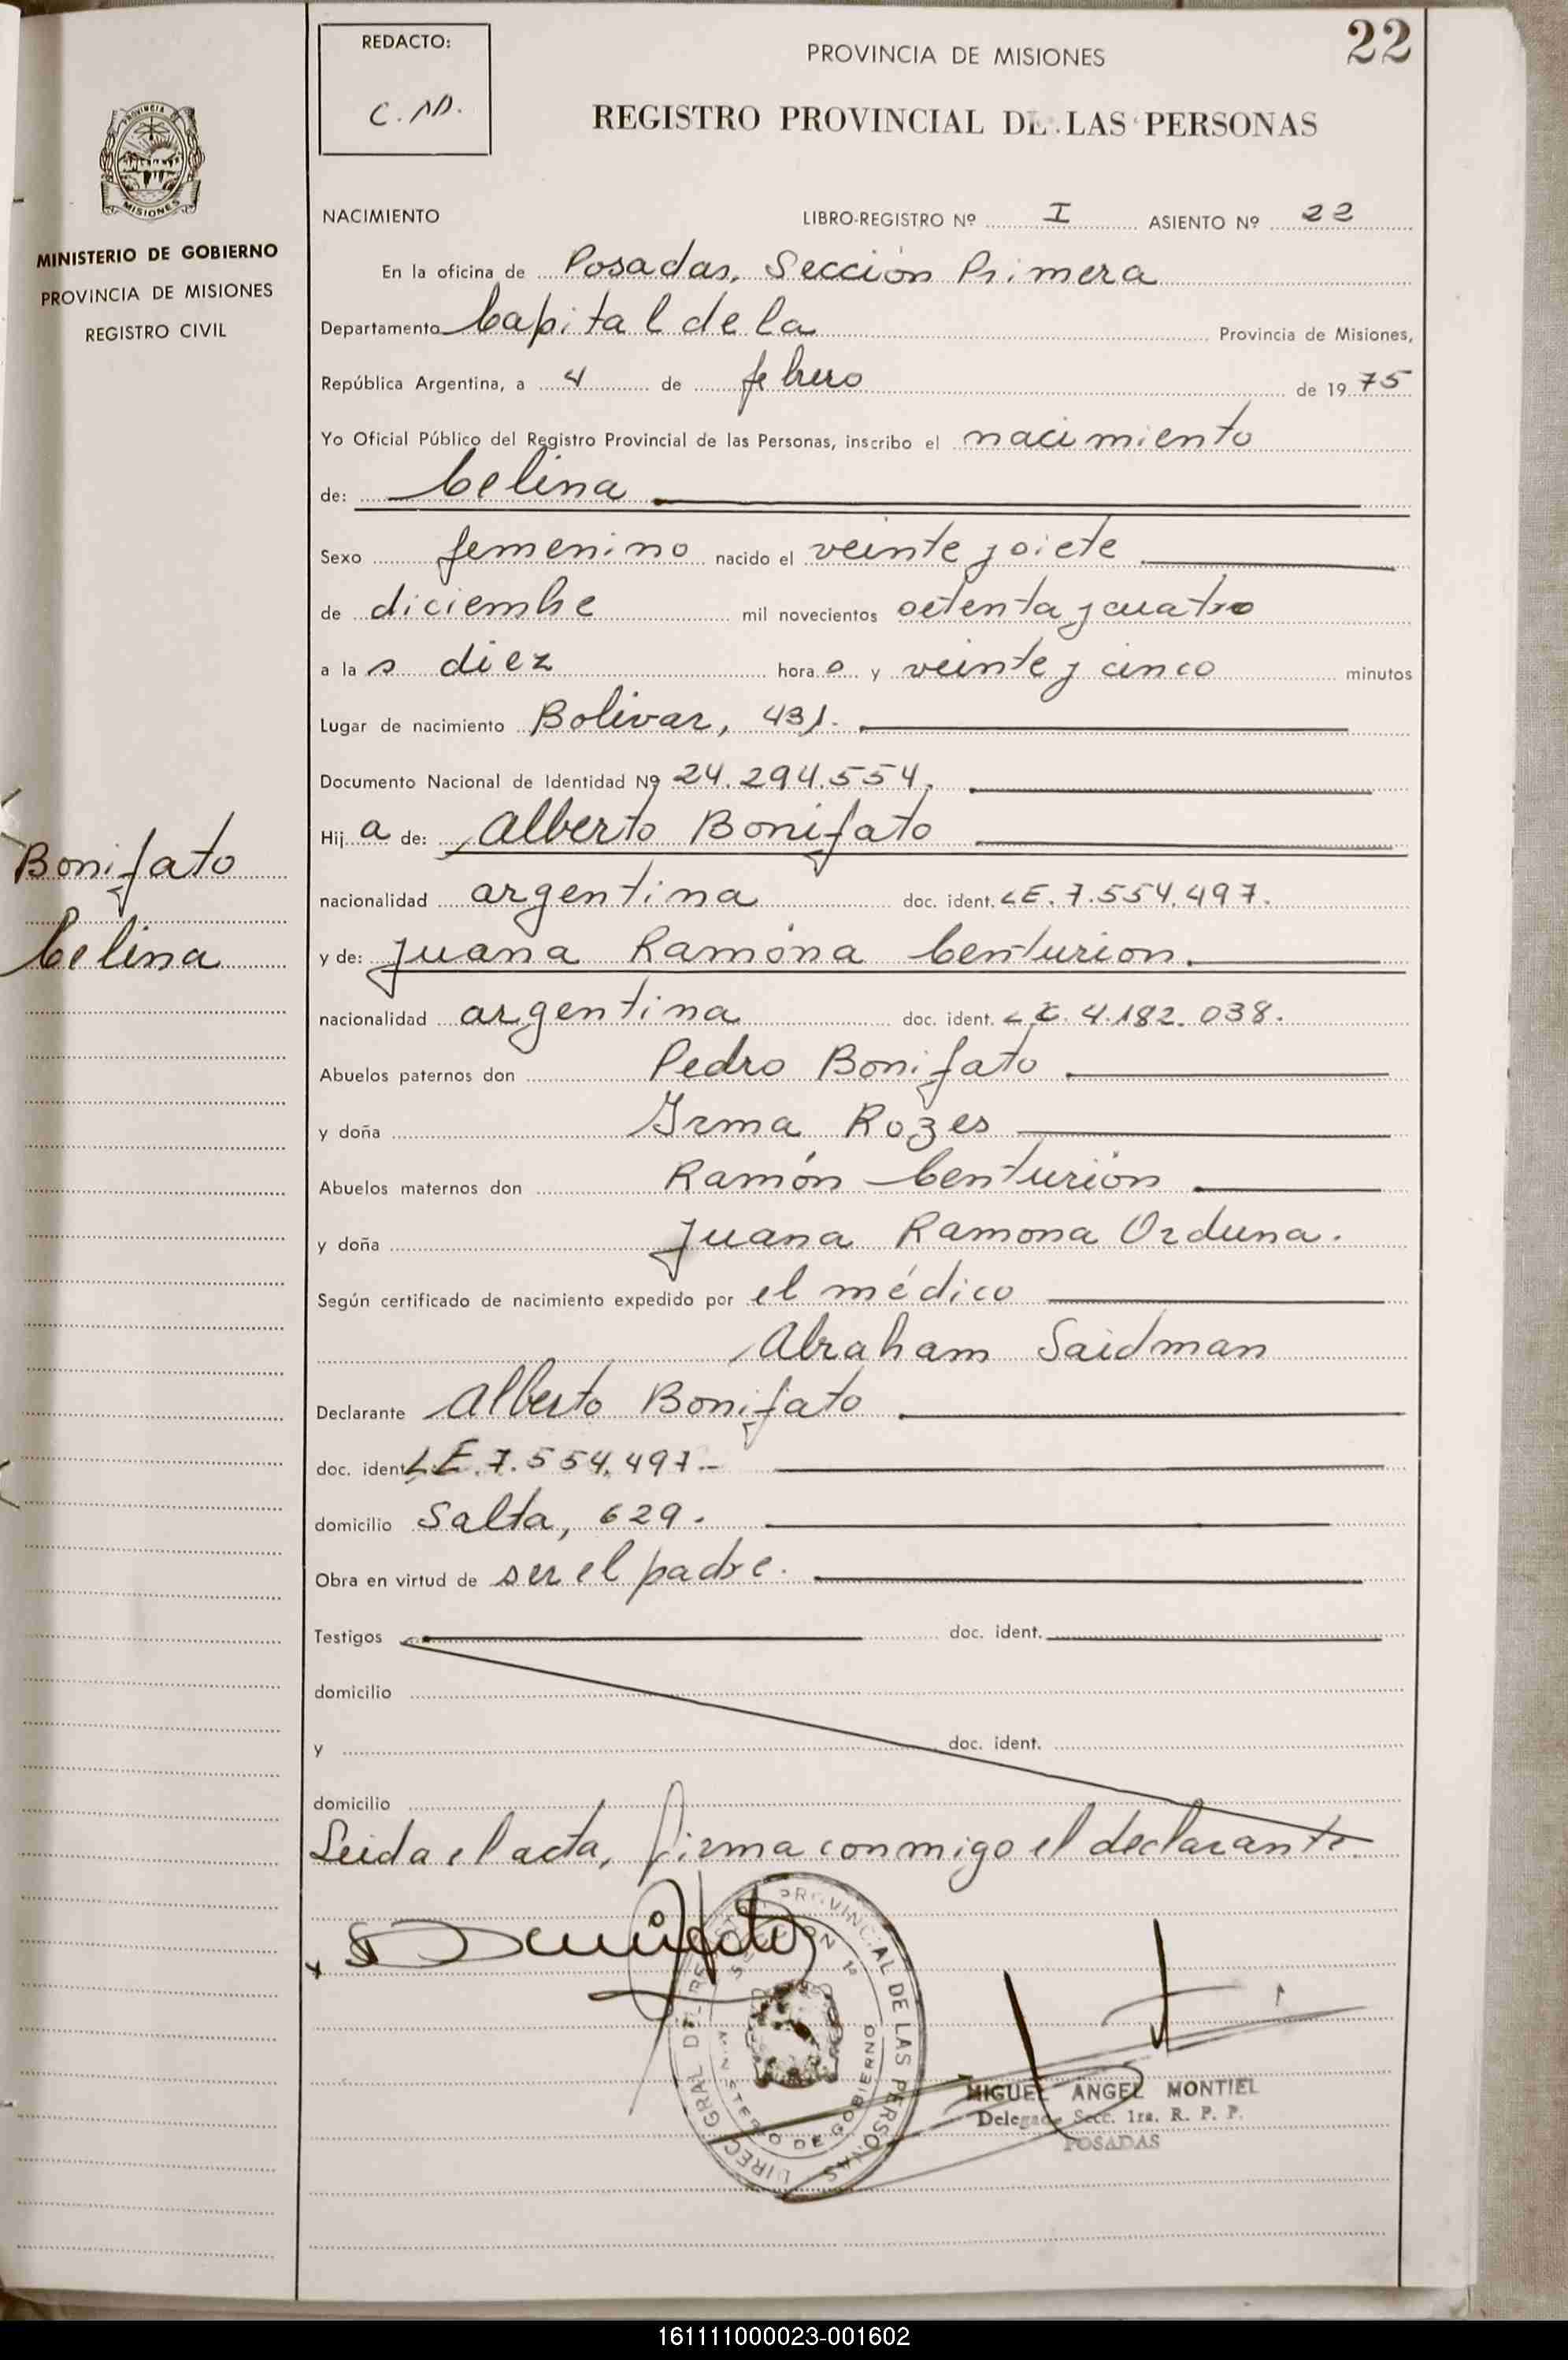 22
REDACTO:
C. M.
PROVINCIA DE MISIONES
REGISTRO PROVINCIAL DE LAS PERSONAS
PROVINCIA DE
MISIONES
MINISTERIO DE GOBIERNO
PROVINCIA DE MISIONES
REGISTRO CIVIL
NACIMIENTO LIBRO-REGISTRO Nº I ASIENTO Nº 22
En la oficina de Posadas, Sección Primera
Departamento Capital de la Provincia de Misiones,
República Argentina, a 4 de febrero de 1975
Yo Oficial Público del Registro Provincial de las Personas, inscribo el nacimiento
de: Celina
Sexo femenino nacido el veinte y siete
de diciembre mil novecientos setenta y cuatro
a la s diez hora s y veinte y cinco minutos
Lugar de nacimiento Bolivar, 431.
Documento Nacional de Identidad Nº 24.294.554.
Hij a de: Alberto Bonifato
nacionalidad argentina doc. ident. LE. 7.554.497.
y de: Juana Ramona Centurión.
nacionalidad argentina doc. ident. LC. 4.182.038.
Abuelos paternos don Pedro Bonifato
y doña Irma Rozes
Abuelos maternos don Ramón Centurión
y doña Juana Ramona Orduna.
Según certificado de nacimiento expedido por el médico
Abraham Saidman
Declarante Alberto Bonifato
doc. ident LE. 7.554.497.-
domicilio Salta, 629.
Obra en virtud de ser el padre.
Testigos doc. ident.
domicilio
y doc. ident.
domicilio
Leida el acta, firma conmigo el declarante.
Bonifato
Celina
DIREC. GRAL. DEL REGISTRO PROVINCIAL DE LAS PERSONAS
SECCION 1ª
MINISTERIO DE GOBIERNO
MIGUEL ANGEL MONTIEL
Delegado Secc. 1ra. R. P. P.
POSADAS
161111000023-001602